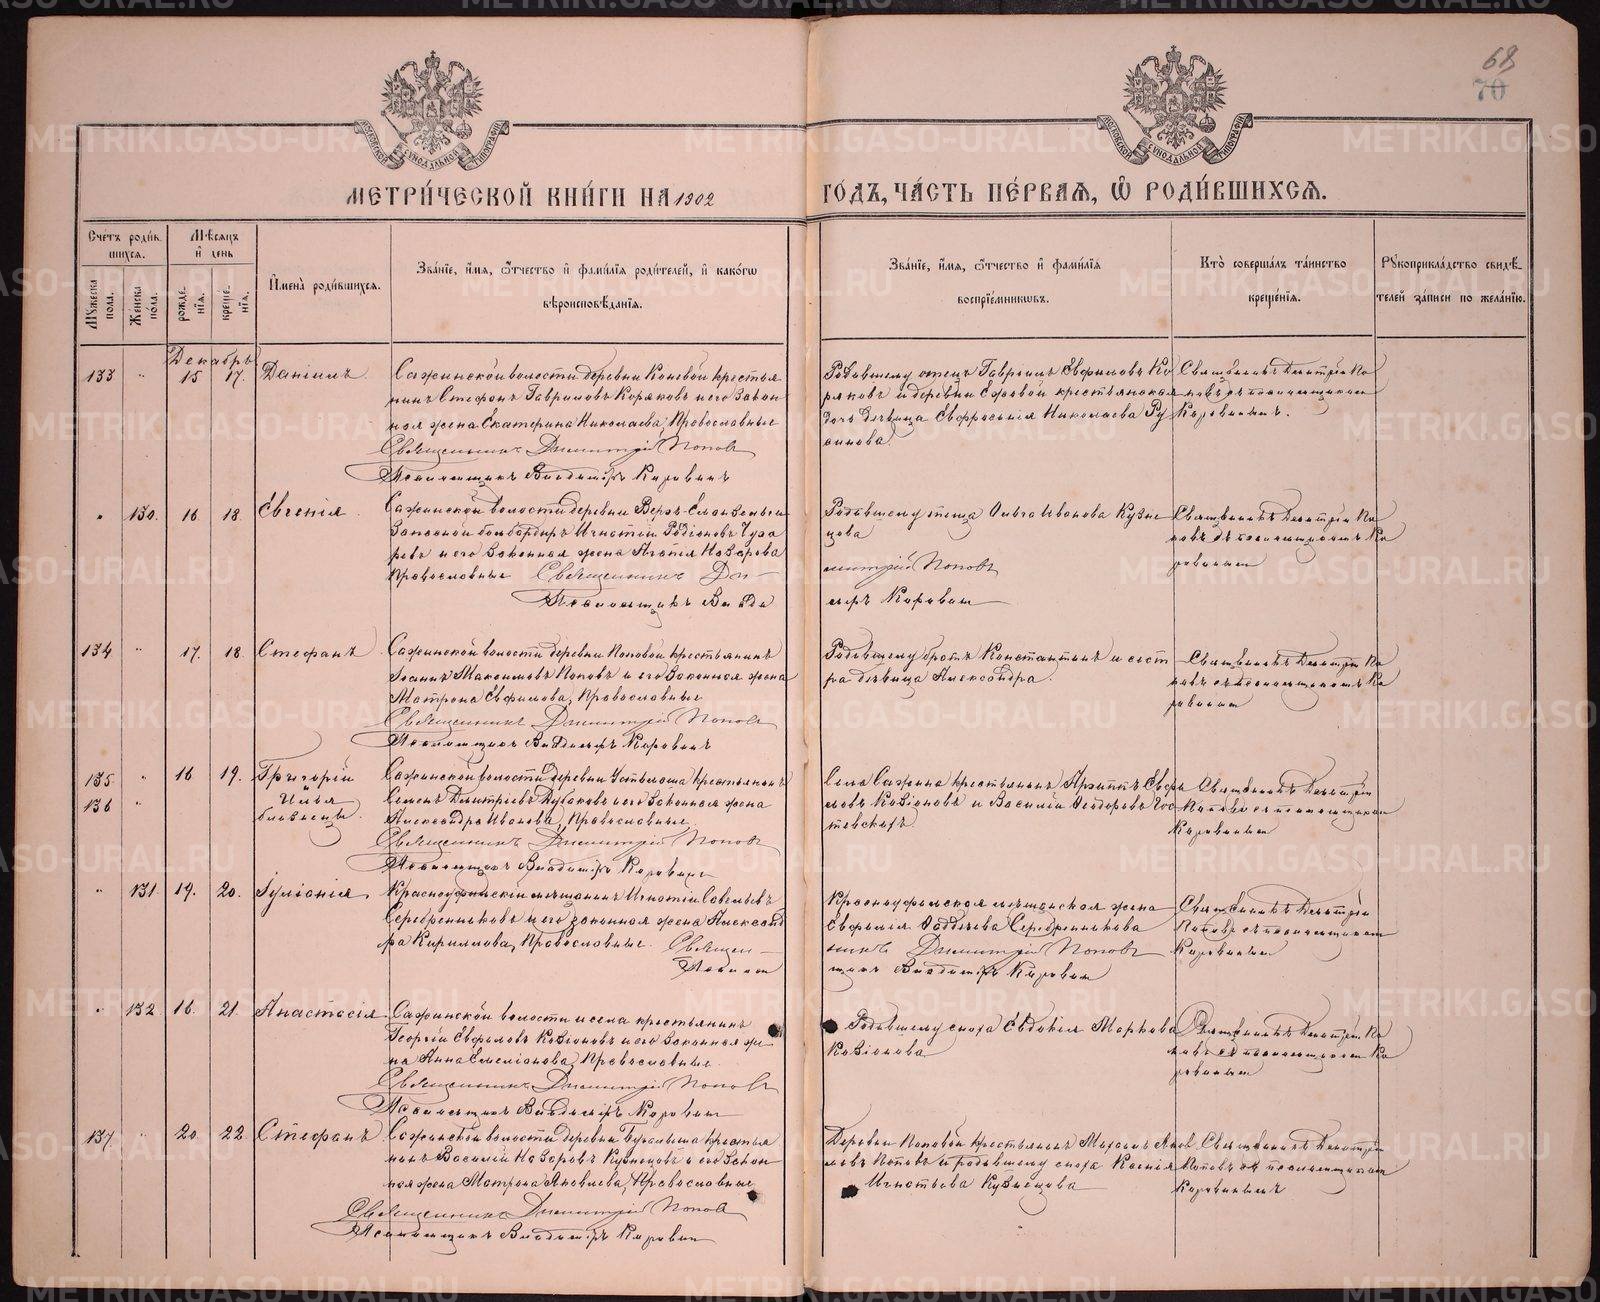 68
70
МОСКОВСКОЙ СѴНОДАЛЬНОЙ ТИПОГРАФІИ
МОСКОВСКОЙ СѴНОДАЛЬНОЙ ТИПОГРАФІИ
МЕТРИ́ЧЕСКОЙ КНИ́ГИ НА 1902 ГОДЪ, ЧА́СТЬ ПЕ́РВАЯ, Ѡ РОДИ́ВШИХСЯ.
Сче́тъ роди́вшихся.
Мѣ́сяцъ и҆ де́нь
Му́жеска пола.
Же́нска пола.
рожде́нїѧ.
креще́нїѧ.
И҆мена̀ роди́вшихся.
Зва́нїе, и҆́мя, ѻ҆́тчество и҆ фами́лїя роди́телей, и҆ како́гѡ
вѣроисповѣ́данїя.
Зва́нїе, и҆́мя, ѻ҆́тчество и҆ фами́лїя
воспрїе́мникѡвъ.
Кто̀ соверша́лъ та́инство
креще́нїя.
Рꙋкоприкла́дство свидѣ́-
телей за́писи по жела́нїю.
Декабрь
133 " 15 17. Даніилъ
Сажинской волости деревни Коневой крестья
нинъ Стефанъ Гавриловъ Коряковъ и его закон
ная жена Екатерина Николаева, Православные
Священникъ Димитрій Поповъ
Псаломщикъ Владиміръ Коровинъ
Родившему отецъ Гавріилъ Евфимовъ Ко
ряковъ и деревни Ежовой крестьянская
дочь девица Евфросинія Николаева Ру
синова.
Священникъ Димитрій По
повъ съ псаломщикомъ
Коровинымъ.
" 130. 16 18. Евгенія
Сажинской волости деревни Верхъ-
Запасной бомбардиръ Игнатій Родіоновъ
и его законная жена Агапія Назарова
Православные Священникъ Ди-
митрій Поповъ
Псаломщикъ Влади
міръ Коровин
Родившему теща Ольга Иванова Кузне
цова
Священникъ Димитрій По
повъ съ псаломщикомъ Ко
ровиным
134 " 17. 18 Стефанъ
Сажинской волости деревни Поповой крестьянинъ
Іоаннъ Максимовъ Поповъ и его законная жена
Матрона Евфимова, Православные
Священникъ Димитрій Поповъ
Псаломщикъ Владиміръ Коровинъ
Родившему братъ Константинъ и сест
ра девица Александра.
Священникъ Димитрій По
повъ съ псаломщикомъ Ко
ровиным
135 " 16 19. Григорій
136 " Илья
близнецы.
Сажинской волости деревни крестьянинъ
Семенъ Димитріевъ и его законная жена
Александра Иванова, Православные.
Священникъ Димитрій Поповъ
Псаломщикъ Владиміръ Коровинъ
Села Сажина крестьянинъ Архиппъ Евфи
мовъ Казіоновъ и Василій Ѳеодоровъ
Священникъ Димитрій
Поповъ съ псаломщикомъ
Коровиным
" 131 19. 20. Іуліанія
Красноуфимскій мещанинъ Игнатій Савельевъ
Серебренниковъ и его законная жена Александ
ра Кириллова, Православные. Священ-
никъ Димитрій Поповъ
Псалом
щикъ Владиміръ Коровин
Красноуфимская мещанская жена
Евфимія Серебренникова
Священникъ Димитрій
Поповъ съ псаломщикомъ
Коровинымъ
" 132 16. 21. Анастасія
Сажинской волости и села крестьянинъ
Георгій Евфимовъ Казіоновъ и его законная же
на Анна Емеліанова, Православные.
Священникъ Димитрій Поповъ
Псаломщикъ Владиміръ Коровин
Родившему сноха Евдокія Маркова
Казіонова
Священникъ Димитрій По
повъ съ псаломщикомъ Ко
ровиным
137 " 20. 22. Стефанъ
Сажинской волости деревни крестья
нинъ Василій Назаровъ Кузнецовъ и его закон
ная жена Матрона Яковлева, Православные
Священникъ Димитрій Поповъ
Псаломщикъ Владиміръ Коровин
Деревни Поповой крестьянинъ Яков
левъ Поповъ и родившему сноха Ксенія
Игнатьева Кузнецова
Священникъ Димитрій
Поповъ съ псаломщикомъ
Коровинымъ
METRIKI.GASO-URAL.RU